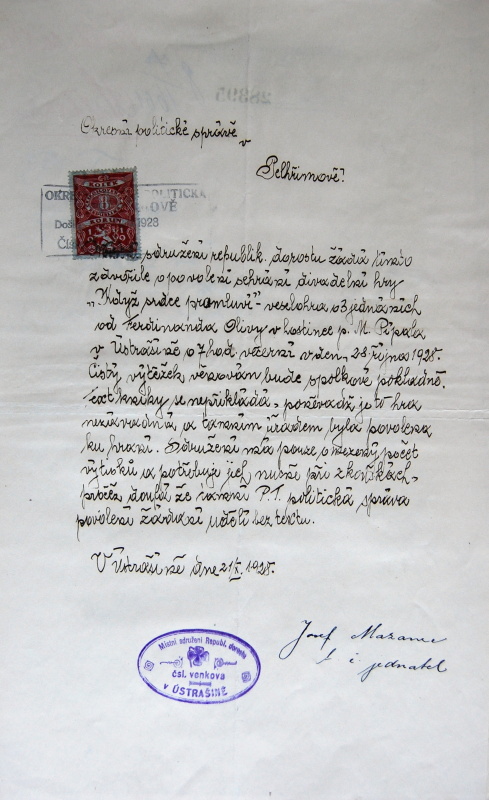 28395
Okresní politické správě
v
Pelhřimově.
KOLEK
OKRE POLITICKÁ
OVĚ
Doš 1928
Čís
sdružení republik. dorostu žádá tímto
zdvořile o povolení sehrání divadelní hry
„Když srdce promluví" - veselohra o 3 jednáních
od Ferdinanda Olivy v hostinci p. M. Pípala
v Ústrašíně o 7 hod. večerní v den, 28. října 1928.
Čistý výtěžek věnován bude spolkové pokladně.
Text knihy se nepřikládá, poněvadž je to hra
nezávadná a tamním úřadem byla povolena
ku hraní. Sdružení má pouze omezený počet
výtisků a potřebuje jich nutně při zkouškách,
pročež doufá že tamní P.T. politická správa
povolení žádané udělí bez textu.
V Ústrašíně dne 21/X. 1928.
Josef Mazanec
t. č. jednatel
Místní sdružení Republ. dorostu
čsl. venkova
v ÚSTRAŠÍNĚ